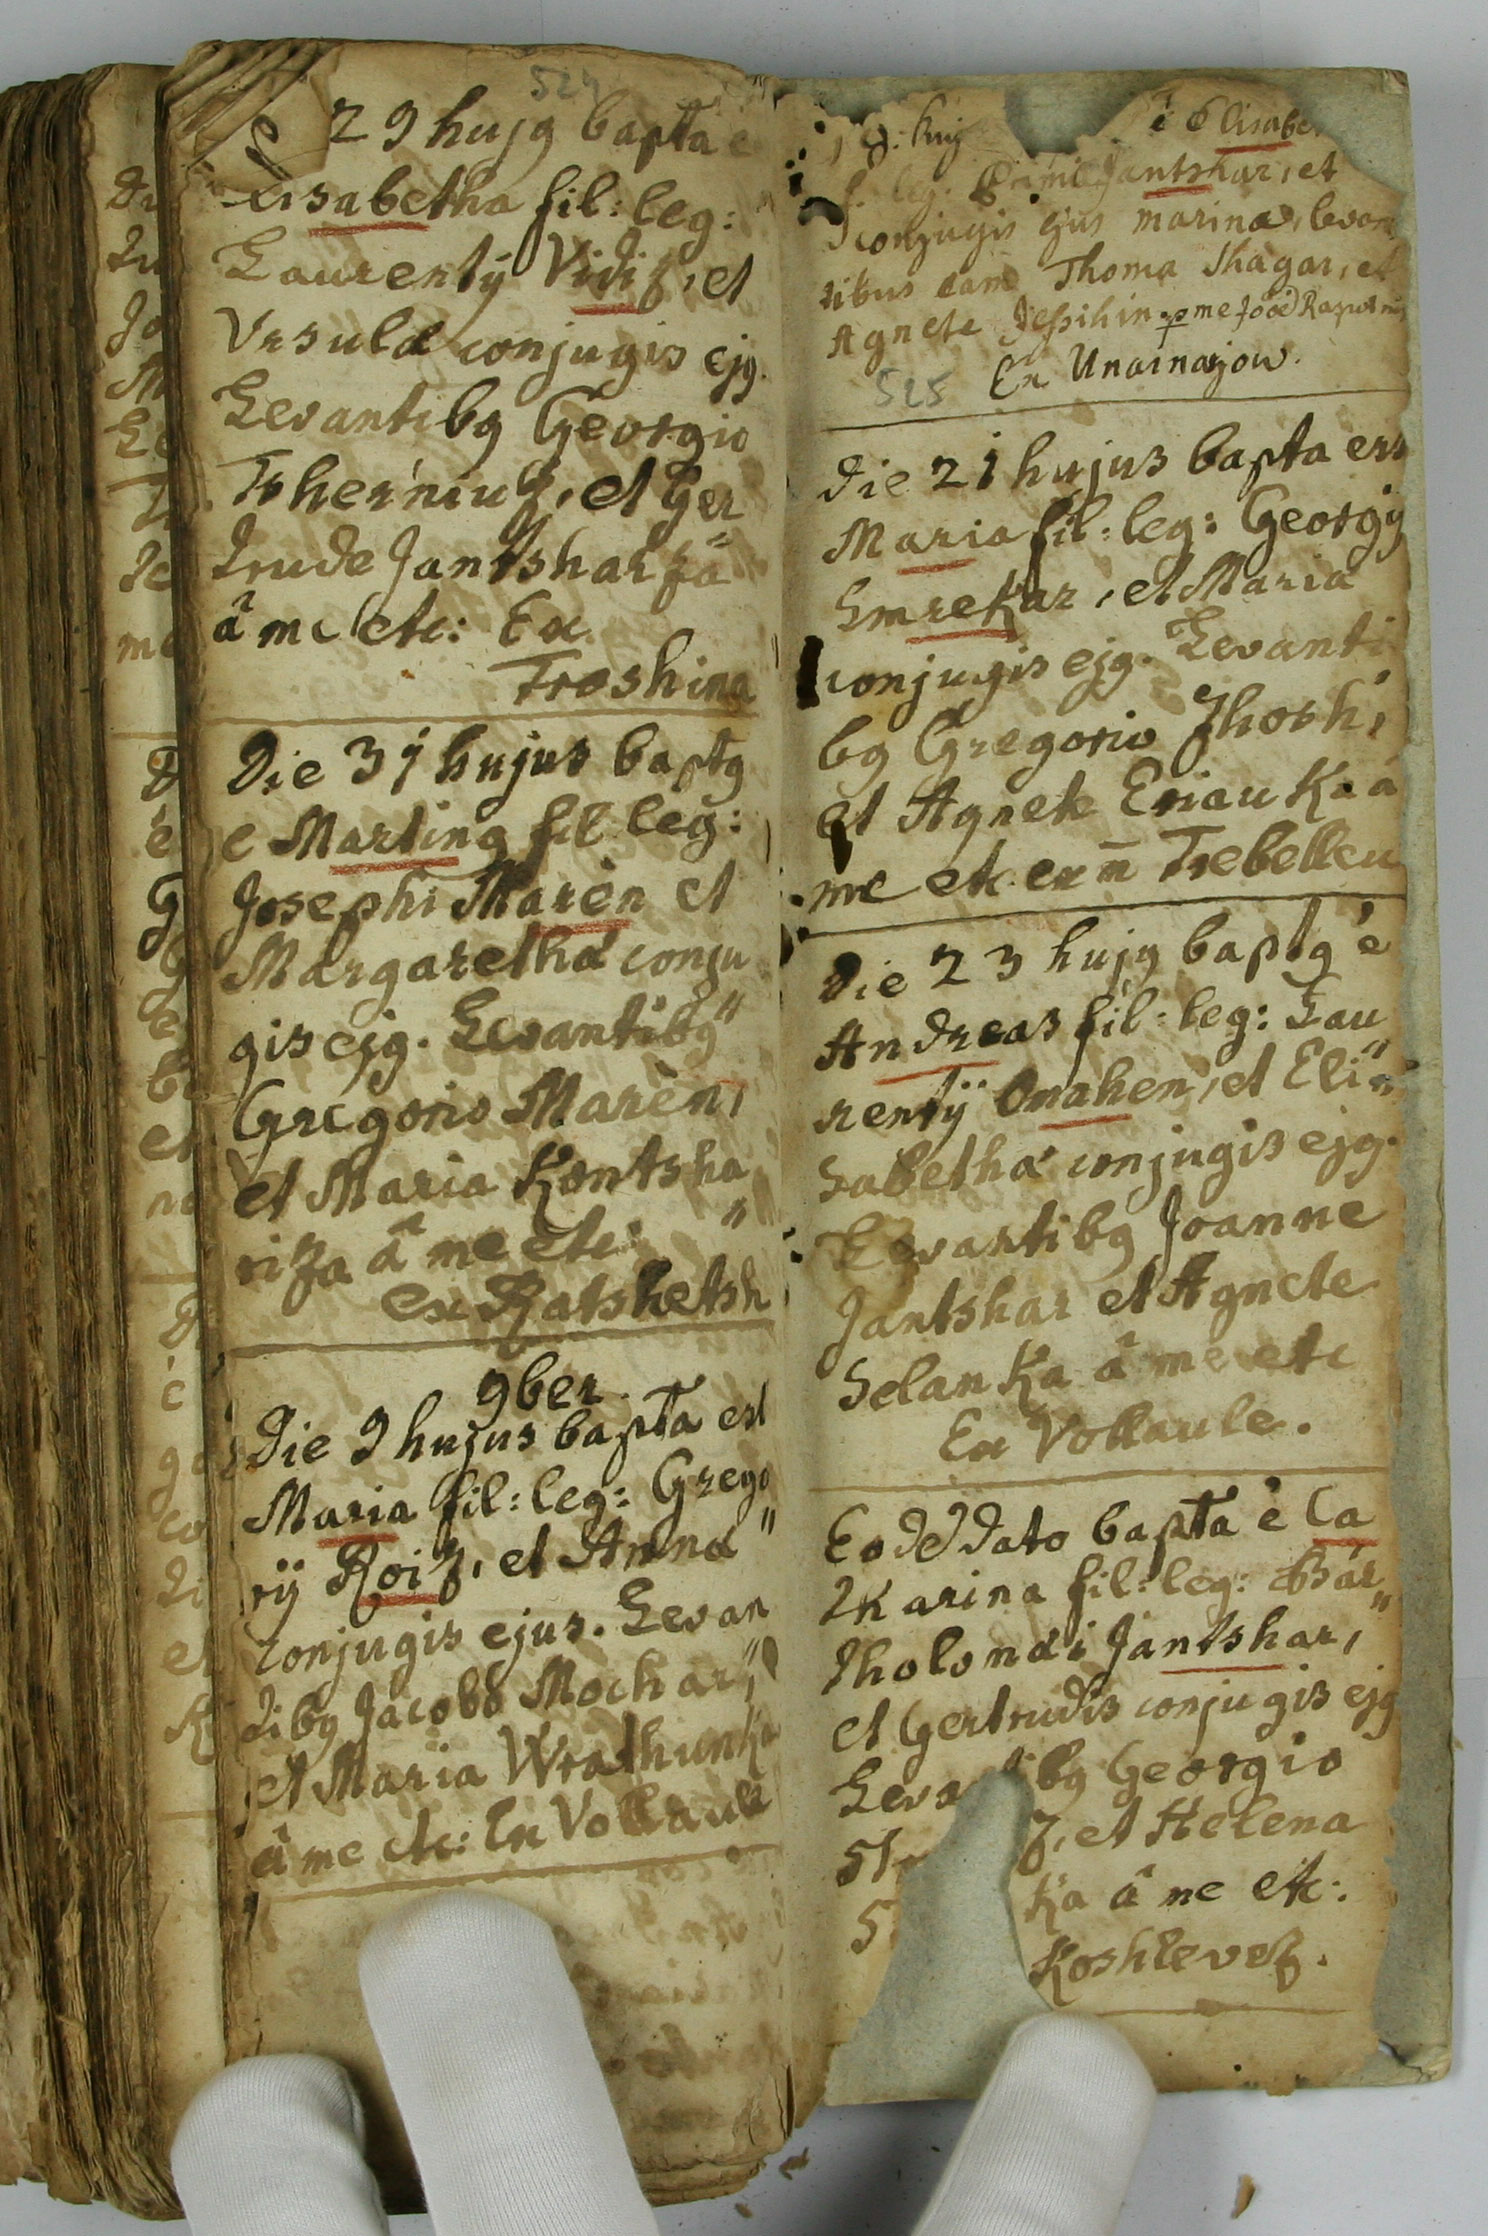 524
29 hujq bapta e
Elisabetha fil: leg:
Laurentÿ Vidiz, et
Ursulæ conjugis ejq.
Levantibq Georgio
Tsherniuz, et Ger
trude Jantsharza
â me etc: Ex
Troshina
Die 31 hujus baptq
e Martinq fil leg:
Josephi Marèn et
Margarethæ conju
gis ejq. Levantibq
Gregorio Marèn,
et Maria Kontsha
riza â me etc:
ex Ratshetsh
9ber.
Die 9 hujus bapta est
Maria fil: leg: Grego
rÿ Roiz, et Annæ
conjugis ejus. Levan
tibq Jacobo Mochar,
et Maria Wrathunka
â me etc: Ex Vollaule
é Elisabe
f. leg. Jantshar, et
conjugis ejus marinæ, levan
tibus eam Thoma Shagar, et
Agnete Jessihin
525 Ex Unainarjow.
Die 21 hujus bapta est
Maria fil: leg: Georgÿ
Smrekar, et Maria
conjugis ejq. Levanti
bq Gregorio Jhosh,
et Agnete Eriauka â
me etc. ex Trebelleu
Die 23 hujq baptq é
Andreas fil: leg: Lau
rentÿ Onahen, et Eli
sabethæ conjugis ejq.
Levantibq Joanne
Jantshar et Agnete
Selanka â me etc
Ex Vollaule.
Eodē Dato bapta é Ca
tharina fil: leg: Bar
tholomæi Jantshar,
et Gertrudis conjugis ejq
Leva bq Georgio
z, et Helena
ka â me etc:
Koshlevez.